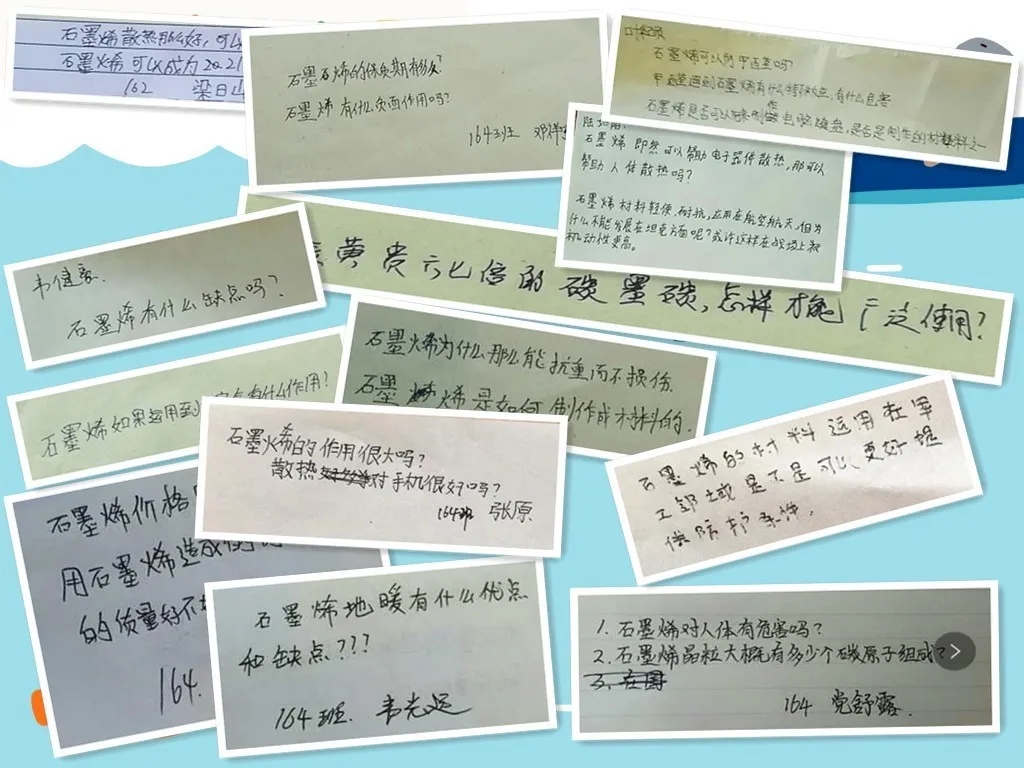 石墨烯散热那么好，可以
石墨烯可以成为2021
162 梁日山
石墨石烯的保质期有多久?
石墨烯有什么负面作用吗?
164班 邓祥
石墨烯可以
甲遇到石墨烯有什么特殊效应，有什么危害
石墨烯是否可以用来制作电脑键盘，是否是制作的材料之一
石墨烯即然可以帮助电子器件散热，那可以
帮助人体散热吗?
石墨烯材料轻便、耐抗，应用在航空航天，但为
什么不能发展在坦克方面呢?或许这样在战场上
机动性更高。
黄贵六七倍的碳墨碳，怎样才能广泛使用?
韦健豪.
石墨烯有什么缺点吗?
石墨烯为什么那么能抗重而不损伤.
石墨烯是如何制作成材料的.
石墨烯如果运用到
有什么作用?
石墨烯的作用很大吗?
散热对手机很好吗?
164班 张原
石墨烯的材料运用在军
工领域是不是可以更好提
供防护条件.
石墨烯价格
用石墨烯造成
的质量好不
164.
石墨烯地暖有什么优点
和缺点???
164班. 韦光远
1. 石墨烯对人体有危害吗?
2. 石墨烯晶粒大概有多少个碳原子组成?
164 党舒露.